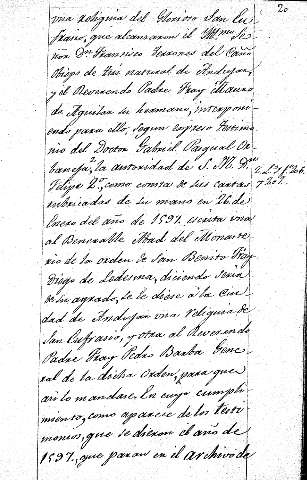 20
una reliquia del Glorioso San Eu-
frasio, que alcanzaron el Illmo Se-
ñor Dn Francisco Terrones del Caño
Obispo de Tui natural de Andujar,
y el Reverendo Padre Fray Mauro
de Aguilar su hermano, interponi-
endo para ello, segun expreso testimo-
nio del Doctor Gabriel Pasqual Or-
baneja, la autoridad de S. M. Dn
Felipe 2º, como consta de sus cartas
rubricadas de su mano en 26 de
Enero del año de 1597. escrita una
al Benerable Abad del Monaste-
rio de la orden de San Benito Fray
Diego de Ledesma, diciendo seria
de su agrado, se le diese à la Ciu-
dad de Andujar una reliquia de
San Eufrasio, y otra al Reverendo
Padre Fray Pedro Barba Gene-
ral de la dicha orden, para que
asi lo mandase. En cuyo cumpli-
miento, como aparese de los testi-
monios, que se dieron el año de
1597., que paran en el archivo de